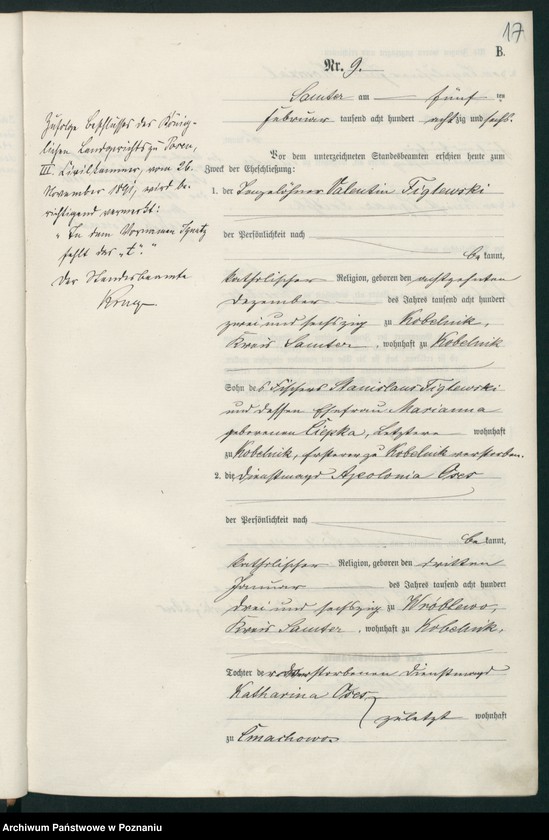 17
B.
Nr. 9.
Samter am fünf ten
Februar tausend acht hundert achtzig und sechs.
Zufolge Beschlusses des König-
lichen Landgerichts zu Posen,
III. Civilkammer, vom 26.
November 1891, wird be-
richtigend vermerkt:
"In dem Vornamen Ignatz
fehlt das „t“."
Der Standesbeamte
Vor dem unterzeichneten Standesbeamten erschien heute zum
Zweck der Eheschließung:
1. der Valentin Figlewski
der Persönlichkeit nach
be kannt,
katholischer Religion, geboren den achtzehnten
Dezember des Jahres tausend acht hundert
zwei und sechszig zu Kobelnik,
Kreis Samter, wohnhaft zu Kobelnik
Sohn des Fischers Stanislaus Figlewski
und dessen Ehefrau Marianna
geborenen Ciepka, Letztere wohnhaft
zu Kobelnik, Ersterer zu Kobelnik verstorben.
2. die Dienstmagd Apolonia Oses
der Persönlichkeit nach
be kannt,
katholischer Religion, geboren den dritten
Januar des Jahres tausend acht hundert
drei und sechszig zu Wróblewo,
Kreis Samter, wohnhaft zu Kobelnik,
Tochter der verstorbenen Dienstmagd
Katharina Oses,
zuletzt wohnhaft
zu Cmachowo
Archiwum Państwowe w Poznaniu